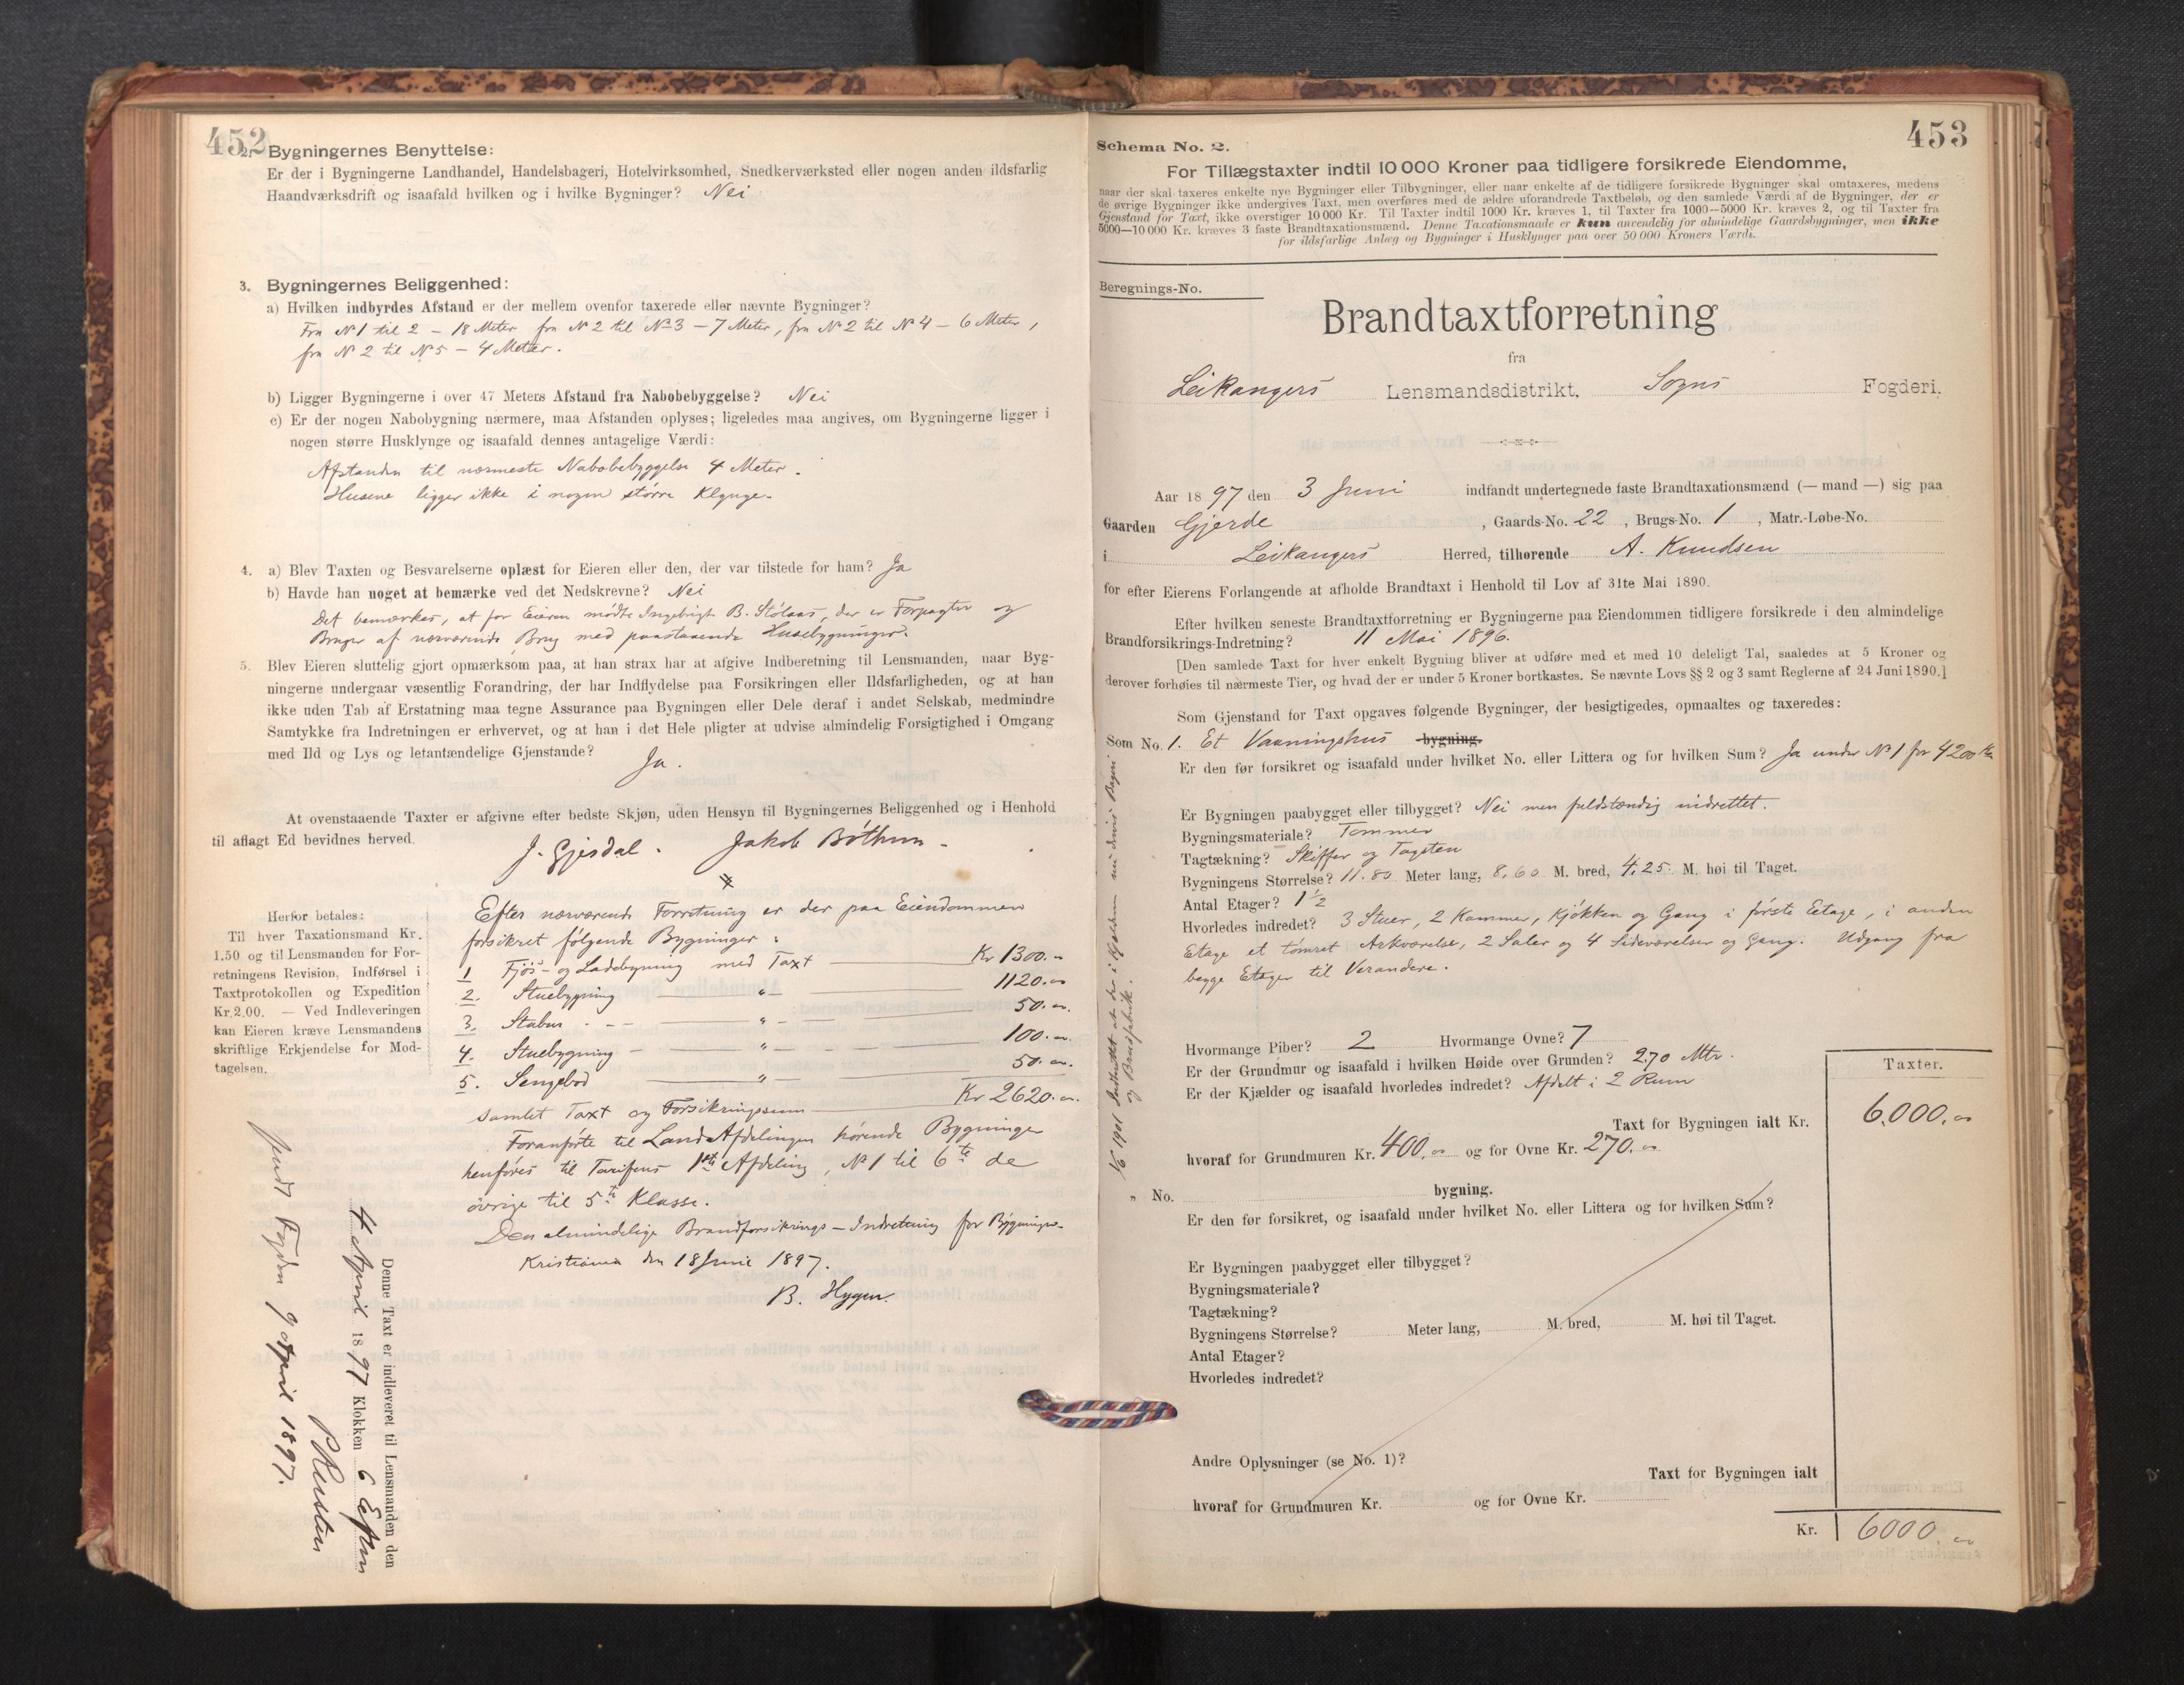 452
2. Bygningernes Benyttelse:
Er der i Bygningerne Landhandel, Handelsbageri, Hotelvirksomhed, Snedkerværksted eller nogen anden ildsfarlig
Haandværksdrift og isaafald hvilken og i hvilke Bygninger? Nei
3. Bygningernes Beliggenhed:
a) Hvilken indbyrdes Afstand er der mellem ovenfor taxerede eller nævnte Bygninger?
Fra No 1 til 2 – 18 Meter fra No 2 til No 3 – 7 Meter, fra No 2 til No 4 – 6 Meter,
fra No 2 til No 5 – 4 Meter.
b) Ligger Bygningerne i over 47 Meters Afstand fra Nabobebyggelse? Nei
c) Er der nogen Nabobygning nærmere, maa Afstanden oplyses; ligeledes maa angives, om Bygningerne ligger i
nogen større Husklynge og isaafald dennes antagelige Værdi:
Afstanden til nærmeste Nabobebyggelse 4 Meter.
Husene ligger ikke i nogen større Klynge.
4. a) Blev Taxten og Besvarelserne oplæst for Eieren eller den, der var tilstede for ham? Ja
b) Havde han noget at bemærke ved det Nedskrevne? Nei
Det bemærkes, at for Eieren mødte Ingebrigt B. Stölaas, der er Forpagter og
Bruger af nærværende Brug med paastaaende Husebygninger.
5. Blev Eieren sluttelig gjort opmærksom paa, at han strax har at afgive Indberetning til Lensmanden, naar Byg-
ningerne undergaar væsentlig Forandring, der har Indflydelse paa Forsikringen eller Ildsfarligheden, og at han
ikke uden Tab af Erstatning maa tegne Assurance paa Bygningen eller Dele deraf i andet Selskab, medmindre
Samtykke fra Indretningen er erhvervet, og at han i det Hele pligter at udvise almindelig Forsigtighed i Omgang
med Ild og Lys og letantændelige Gjenstande?
Ja.
At ovenstaaende Taxter er afgivne efter bedste Skjøn, uden Hensyn til Bygningernes Beliggenhed og i Henhold
til aflagt Ed bevidnes herved.
J. Gjesdal. Jakob Böthun
Herfor betales:
Til hver Taxationsmand Kr.
1.50 og til Lensmanden for For-
retningens Revision, Indførsel i
Taxtprotokollen og Expedition
Kr. 2.00. — Ved Indleveringen
kan Eieren kræve Lensmandens
skriftlige Erkjendelse for Mod-
tagelsen.
Efter nærværende Forretning er der paa Eiendommen
forsikret følgende Bygninger:
1 Fjös- og Ladebygning med Taxt Kr 1300.
2. Stuebygning 1120.
3. Stabur 50.
4. Stuebygning 100.
5. Sengebod 50.
Samlet Taxt og Forsikringssum Kr 2620.
Foranførte til LandAfdelingen hørende Bygninger
henføres til Tarifens 1ste Afdeling, No 1 til 6te de
øvrige til 5te Klasse.
Den almindelige Brandforsikrings-Indretning for Bygninger.
Kristiania den 18 Juni 1897.
B. Hygen.
Denne Taxt er indleveret til Lensmanden den
4 April 1897 Klokken 6 Eftm
Sendt Fogden 9 April 1897.
453
Schema No. 2.
For Tillægstaxter indtil 10 000 Kroner paa tidligere forsikrede Eiendomme,
naar der skal taxeres enkelte nye Bygninger eller Tilbygninger, eller naar enkelte af de tidligere forsikrede Bygninger skal omtaxeres, medens
de øvrige Bygninger ikke undergives Taxt, men overføres med de ældre uforandrede Taxtbeløb, og den samlede Værdi af de Bygninger, der er
Gjenstand for Taxt, ikke overstiger 10 000 Kr. Til Taxter indtil 1000 Kr. kræves 1, til Taxter fra 1000—5000 Kr. kræves 2, og til Taxter fra
5000—10 000 Kr. kræves 3 faste Brandtaxationsmænd. Denne Taxationsmaade er kun anvendelig for almindelige Gaardsbygninger, men ikke
for ildsfarlige Anlæg og Bygninger i Husklynger paa over 50 000 Kroners Værdi.
Beregnings-No.
Brandtaxtforretning
fra
Leikangers Lensmandsdistrikt, Sogns Fogderi.
Aar 1897 den 3 Juni indfandt undertegnede faste Brandtaxationsmænd (— mand —) sig paa
Gaarden Gjerde, Gaards-No. 22, Brugs-No. 1, Matr.-Løbe-No.
i Leikangers Herred, tilhørende A. Knudsen
for efter Eierens Forlangende at afholde Brandtaxt i Henhold til Lov af 31te Mai 1890.
Efter hvilken seneste Brandtaxtforretning er Bygningerne paa Eiendommen tidligere forsikrede i den almindelige
Brandforsikrings-Indretning? 11 Mai 1896.
[Den samlede Taxt for hver enkelt Bygning bliver at udføre med et med 10 deleligt Tal, saaledes at 5 Kroner og
derover forhøies til nærmeste Tier, og hvad der er under 5 Kroner bortkastes. Se nævnte Lovs §§ 2 og 3 samt Reglerne af 24 Juni 1890.]
Som Gjenstand for Taxt opgaves følgende Bygninger, der besigtigedes, opmaaltes og taxeredes:
Som No. 1. Et Vaaningshus bygning.
Er den før forsikret og isaafald under hvilket No. eller Littera og for hvilken Sum? Ja under No 1 for 4200 Kr
Er Bygningen paabygget eller tilbygget? Nei men fuldstændig indrettet.
Bygningsmateriale? Tømmer
Tagtækning? Skiffer og Tagsten
Bygningens Størrelse? 11.80 Meter lang, 8,60 M. bred, 4,25 M. høi til Taget.
Antal Etager? 1 1/2
Hvorledes indredet? 3 Stuer, 2 Kammer, Kjøkken og Gang i første Eetage, i anden
Etage et tømret Arkværelse, 2 Saler og 4 Sideværelser og Gang. Udgang fra
begge Etager til Verandere.
Hvormange Piber? 2 Hvormange Ovne? 7
Er der Grundmur og isaafald i hvilken Høide over Grunden? 2,70 Mtr.
Er der Kjælder og isaafald hvorledes indredet? Afdelt i 2 Rum
Taxter.
Taxt for Bygningen ialt Kr. 6,000.
hvoraf for Grundmuren Kr. 400. og for Ovne Kr. 270.
1/6 1901 Indberettet at der i Kjælderen nu drives Bageri
og Brusfabrik.
" No. bygning.
Er den før forsikret, og isaafald under hvilket No. eller Littera og for hvilken Sum?
Er Bygningen paabygget eller tilbygget?
Bygningsmateriale?
Tagtækning?
Bygningens Størrelse? Meter lang, M. bred, M. høi til Taget.
Antal Etager?
Hvorledes indredet?
Andre Oplysninger (se No. 1)?
Taxt for Bygningen ialt
hvoraf for Grundmuren Kr. og for Ovne Kr.
Kr. 6000.